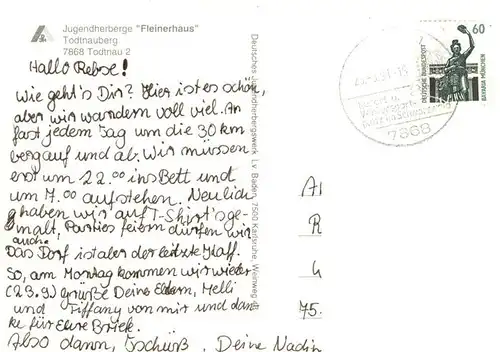 Jugendherberge "Fleinerhaus"
Todtnauberg
7868 Todtnau 2
Hallo Rebse!
Wie geht's Dir? Hier ist es schön,
aber wir wandern voll viel. An
fast jedem Tag um die 30 km
bergauf und ab. Wir müssen
erst um 22.00 ins Bett und
um 7.00 aufstehen. Neulich
haben wir auf T-Shirt's ge-
malt, Parties feiern dürfen wir
auch.
Das Dorf ist aber der letzte Kaff.
So, am Montag kommen wir wieder
(23.9.) grüße Deine Eltern, Melli
und Tiffany von mir und dan-
ke für Eure Briefe.
Also dann, Tschüß. Deine Nadin
Deutsches Jugendherbergswerk Lv. Baden, 7500 Karlsruhe, Weinweg
7868
60
DEUTSCHE BUNDESPOST
BAVARIA MÜNCHEN
Al
R
75.